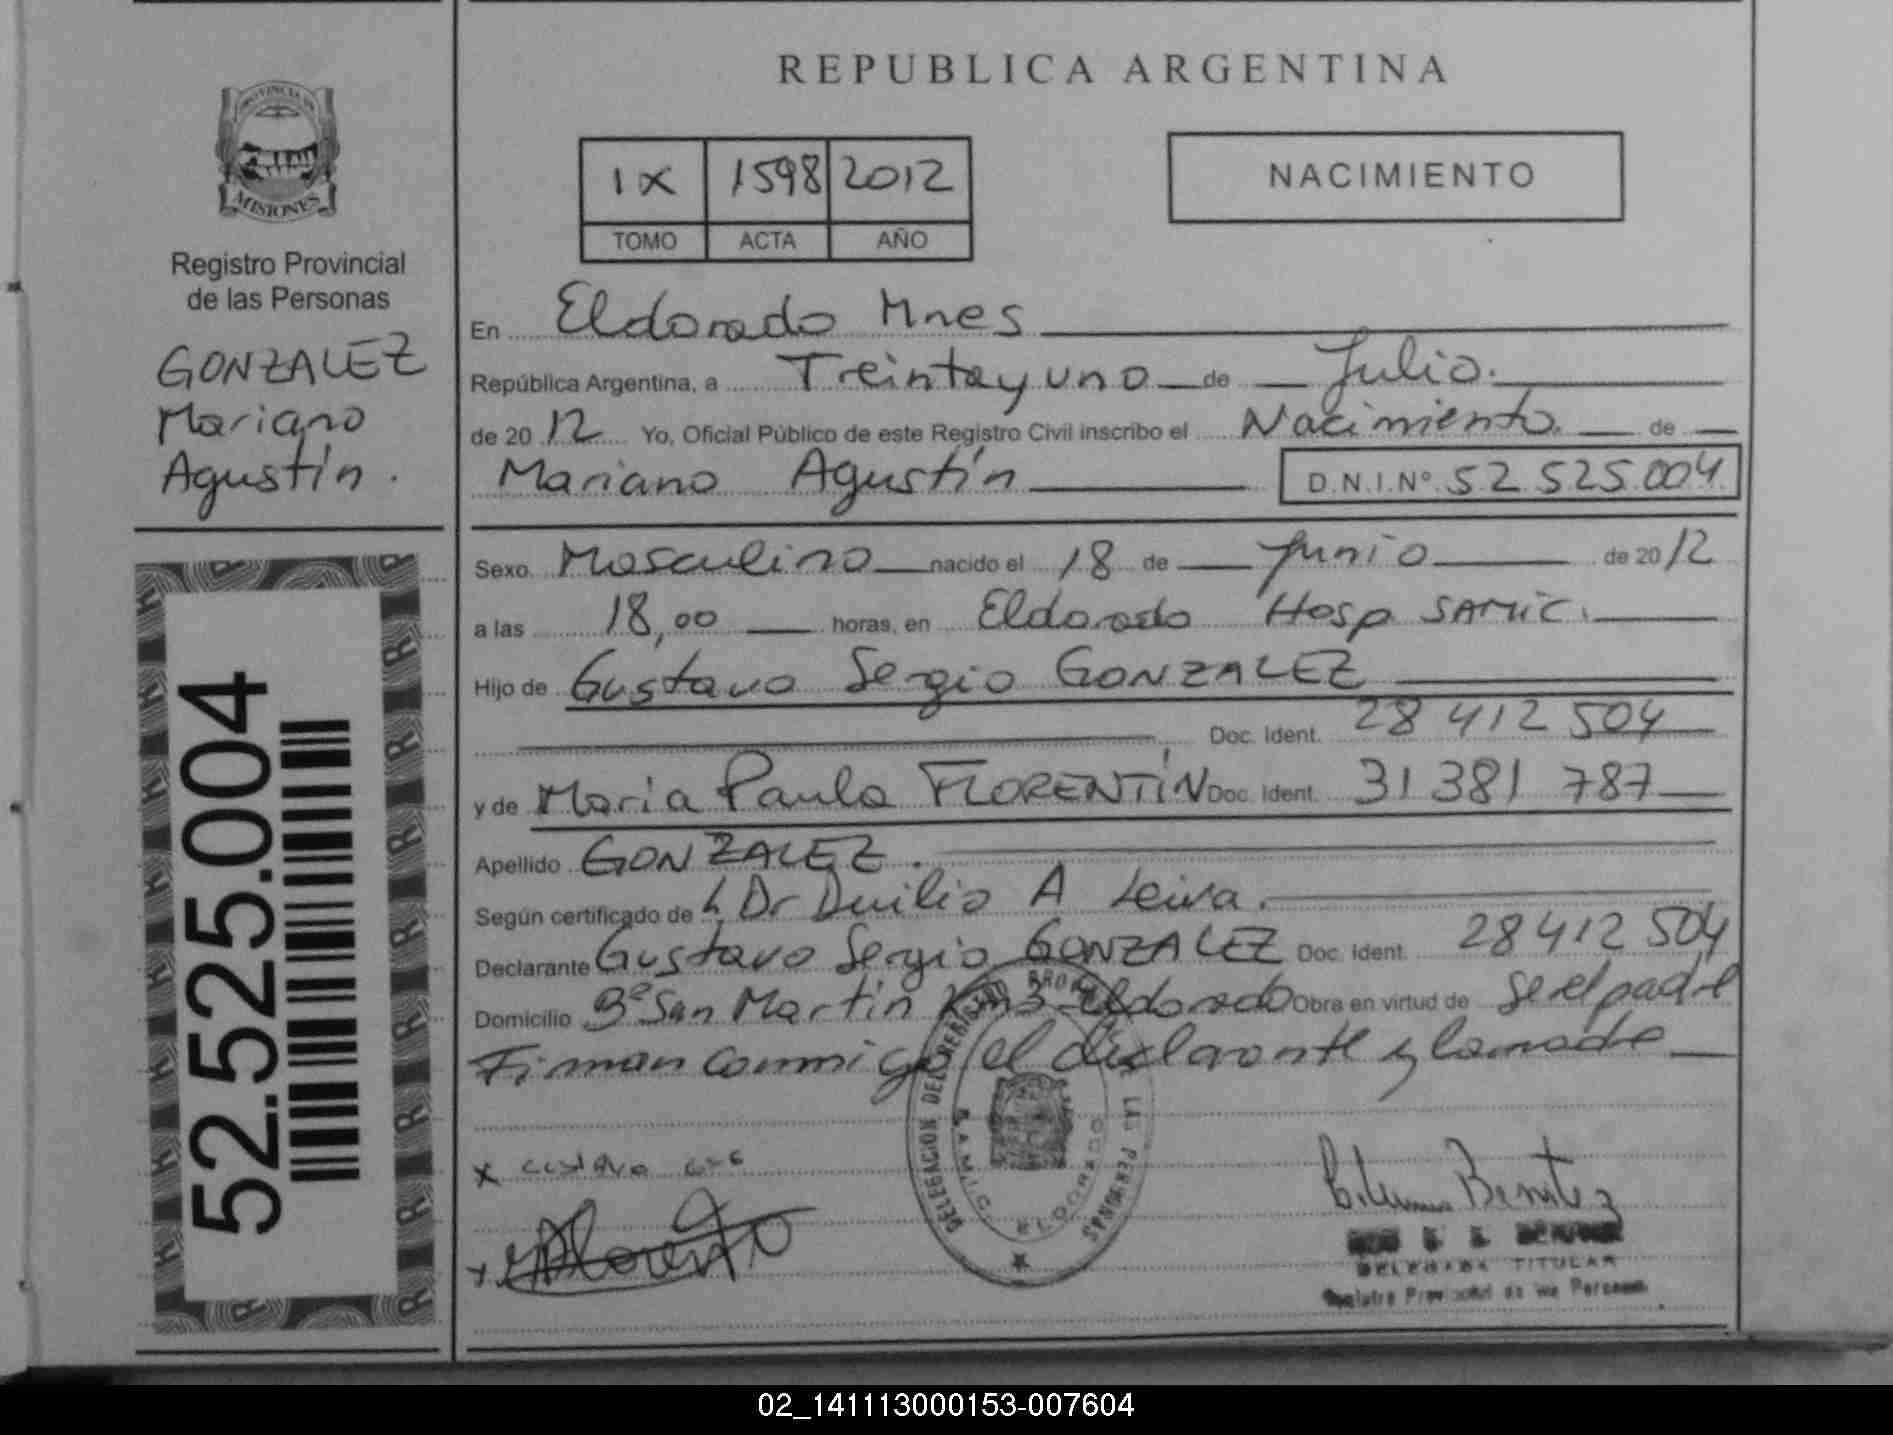 PROVINCIA DE
MISIONES
Registro Provincial
de las Personas
GONZALEZ
Mariano
Agustín.
52.525.004
REPUBLICA ARGENTINA
IX 1598 2012
TOMO ACTA AÑO
NACIMIENTO
En Eldorado Mnes
República Argentina, a Treinta y uno de Julio.
de 20 12 Yo, Oficial Público de este Registro Civil inscribo el Nacimiento. de
Mariano Agustín D.N.I.Nº 52.525.004
Sexo Masculino nacido el 18 de Junio de 20 12
a las 18,00 horas, en Eldorado Hosp SAMIC.
Hijo de Gustavo Sergio GONZALEZ
Doc. Ident. 28 412 504
y de Maria Paula FLORENTÍN Doc. Ident. 31 381 787
Apellido GONZALEZ.
Según certificado de Dr Duilio A Leiva.
Declarante Gustavo Sergio GONZALEZ Doc. Ident. 28 412 504
Domicilio Bº San Martin Eldorado Obra en virtud de Se el padre
Firman conmigo el declarante y la madre
DELEGACION DEL REGISTRO LAS PERSONAS
SAMIC. ELDORADO
x
x
Benitez
DELEGADA TITULAR
Registro Provincial de las Personas
02_141113000153-007604